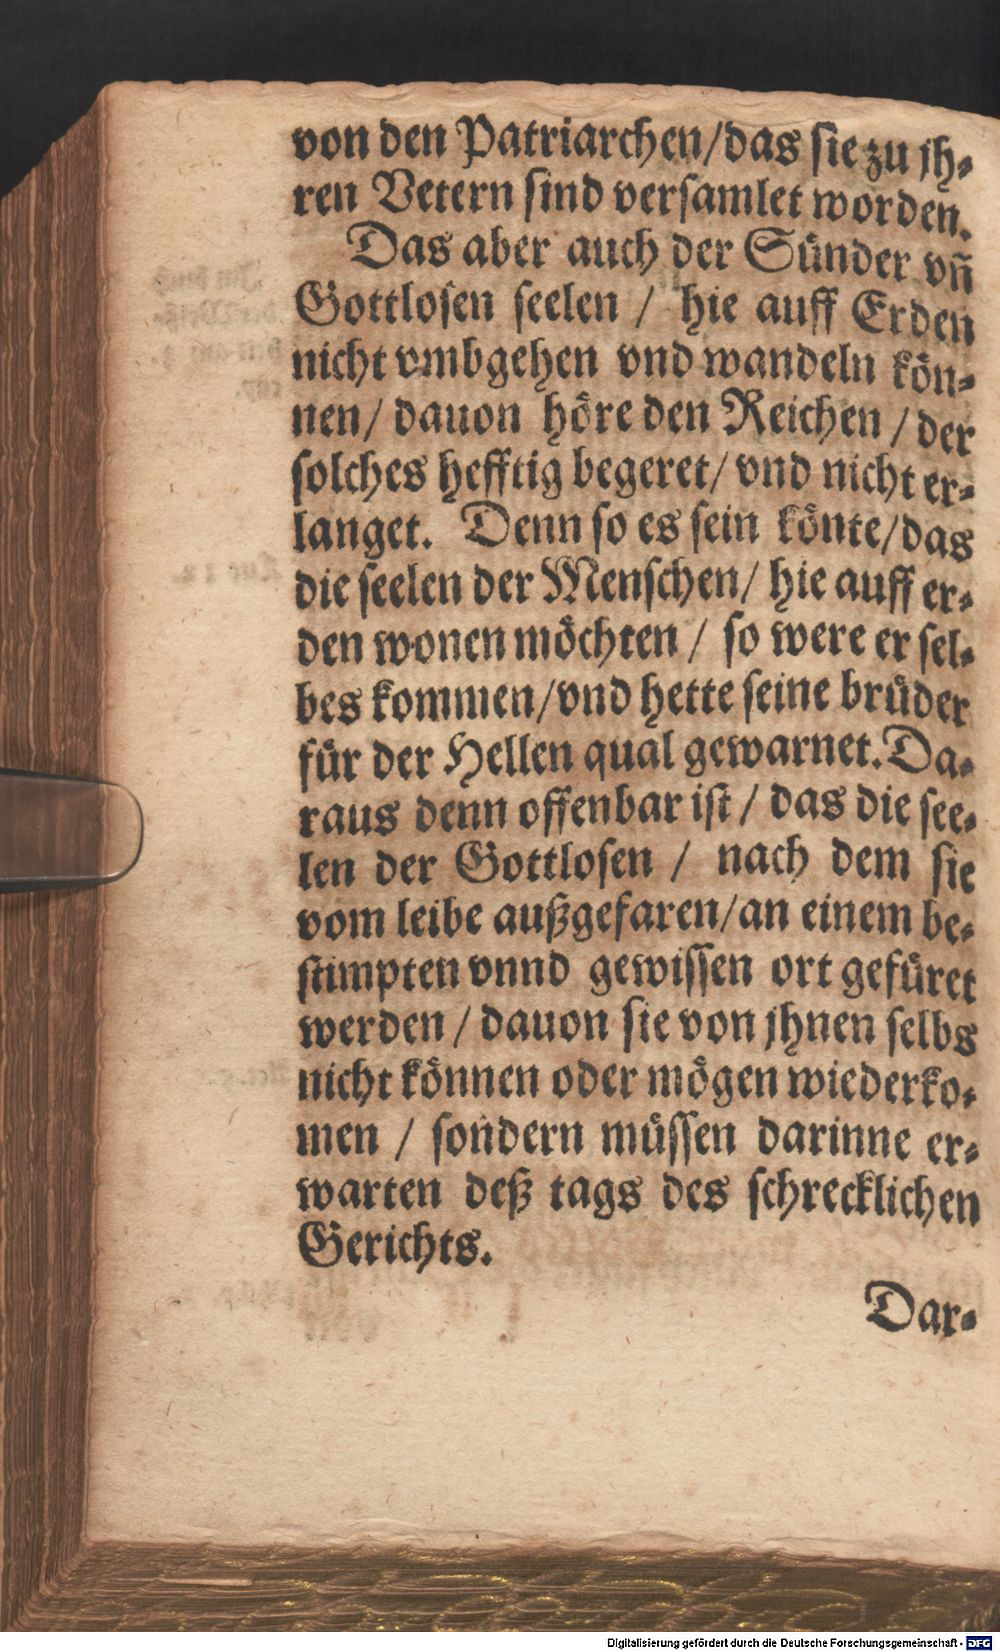 von den Patriarchen/das sie zu jh-
ren Vetern sind versamlet worden.
Das aber auch der Sünder vñ
Gottlosen seelen / hie auff Erden
nicht vmbgehen vnd wandeln kön-
nen/ dauon höre den Reichen / der
solches hefftig begeret/ vnd nicht er-
langet. Denn so es sein könte/das
die seelen der Menschen/ hie auff er-
den wonen möchten / so were er sel-
bes kommen/vnd hette seine brüder
für der Hellen qual gewarnet. Da-
raus denn offenbar ist / das die see-
len der Gottlosen / nach dem sie
vom leibe außgefaren/an einem be-
stimpten vnnd gewissen ort gefüret
werden / dauon sie von jhnen selbs
nicht können oder mögen wiederko-
men / sondern müssen darinne er-
warten deß tags des schrecklichen
Gerichts.
Dar-
Digitalisierung gefördert durch die Deutsche Forschungsgemeinschaft - DFG